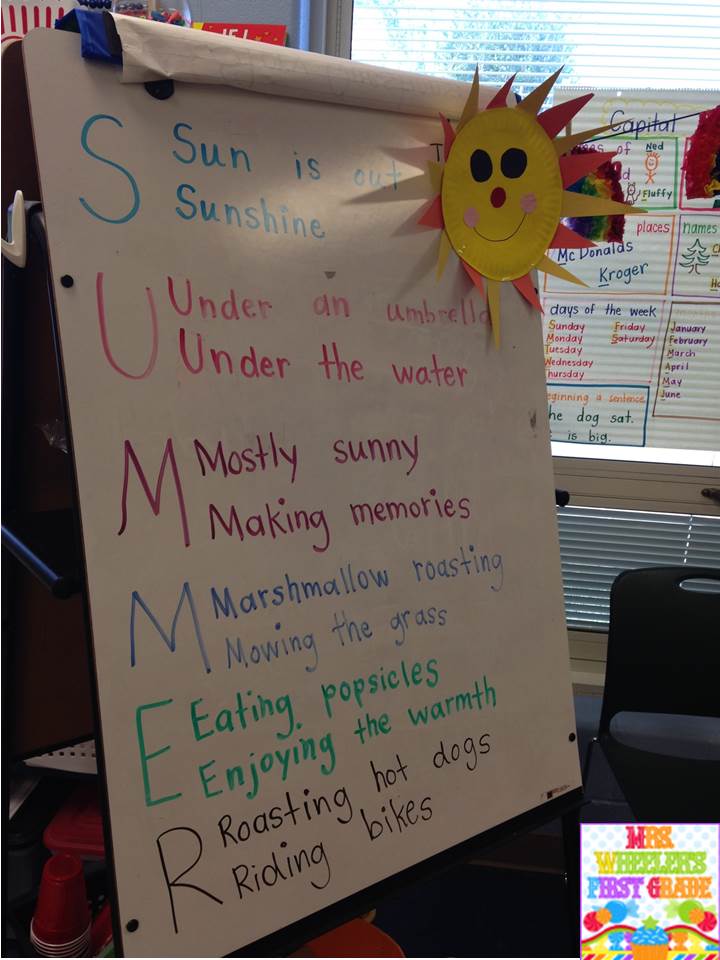 S Sun is out
Sunshine
U Under an umbrella
Under the water
M Mostly sunny
Making memories
M Marshmallow roasting
Mowing the grass
E Eating popsicles
Enjoying the warmth
R Roasting hot dogs
Riding bikes
Capital
of Ned
Fluffy
places
McDonalds
Kroger
names
days of the week
Sunday Friday
Monday Saturday
Tuesday
Wednesday
Thursday
January
February
March
April
May
June
beginning a sentence
The dog sat.
is big.
MRS
WHEELER'S
FIRST GRADE